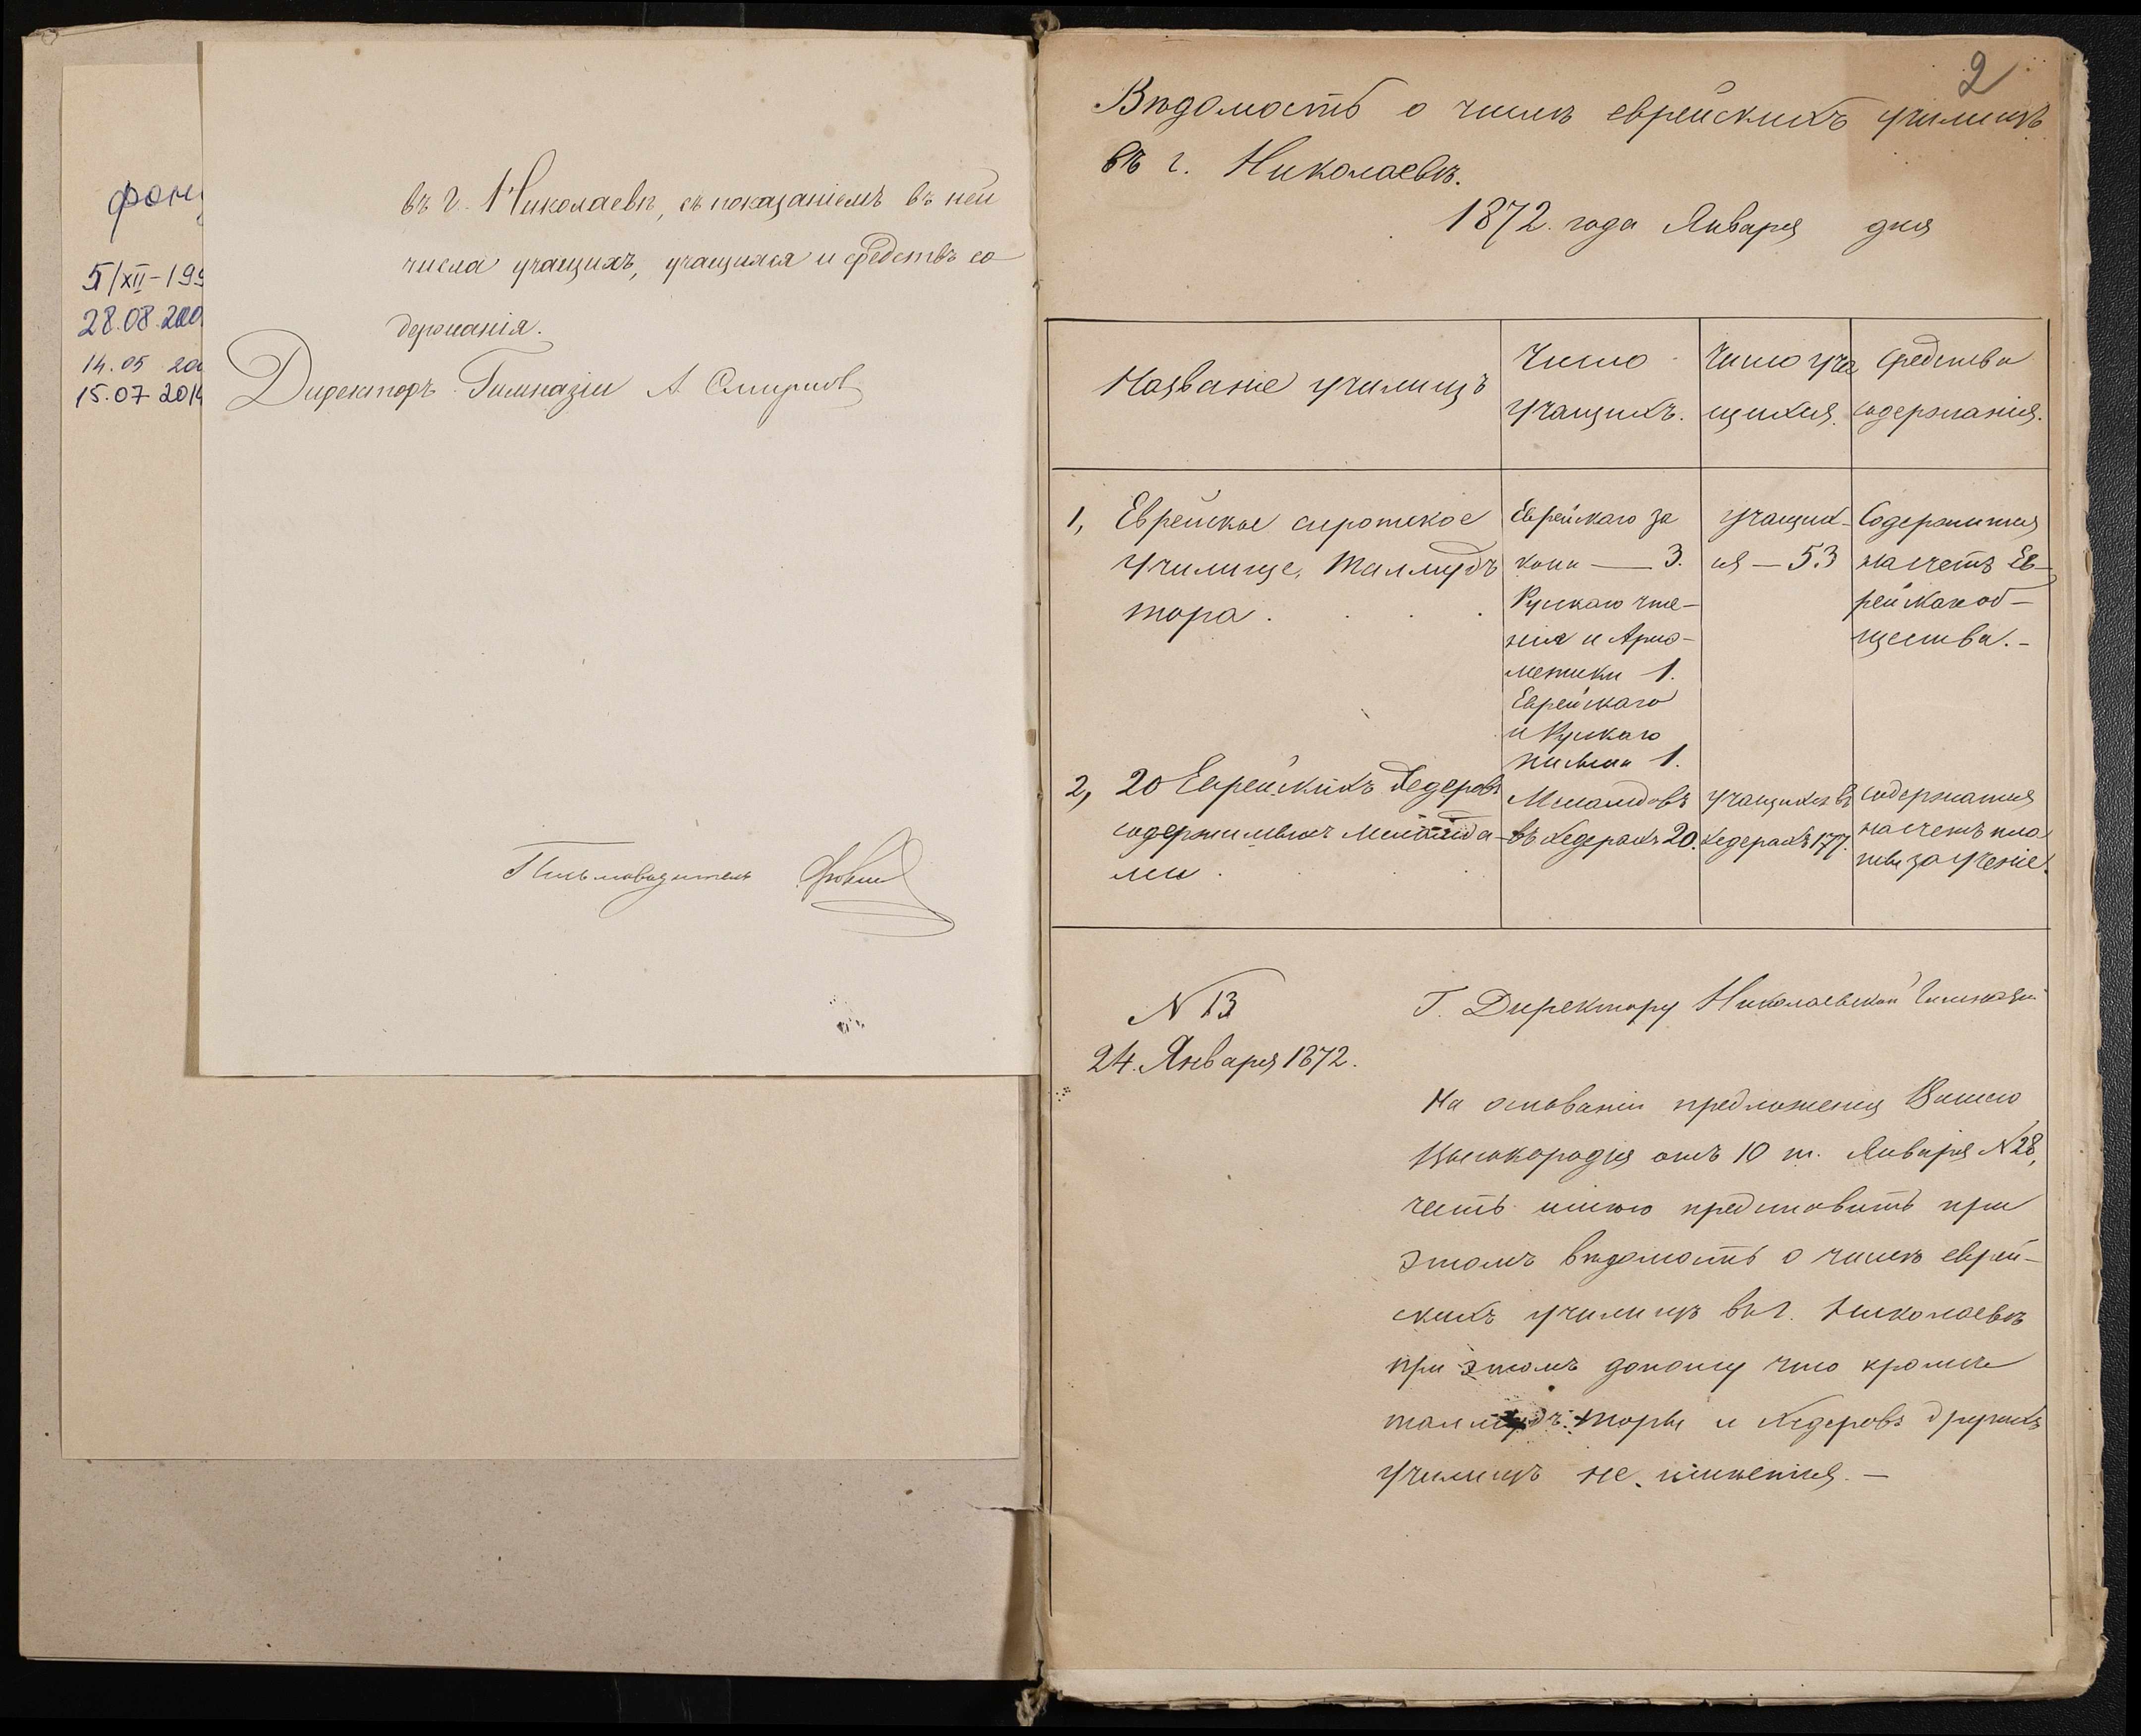 фон
5/XII-199
28.08.200
14.05 200
15.07-2014
въ г. Николаевѣ, съ показаніемъ въ ней
числа учащихъ, учащихся и средствъ со
держанія.
Директоръ Гимназіи А. Смирнов
Письмоводитель
2
Вѣдомость о числѣ еврейскихъ училищъ
въ г. Николаевѣ.
1872 года Января дня
Названіе училищъ
Число
учащихъ.
Число уча
щихся.
Средства
содержанія.
1, Еврейское сиротское
училище, Талмудъ
тора.
Еврейскаго за
кона — 3.
Рускаго чте-
нія и Арио-
метики 1.
Еврейскаго
и Рускаго
письма 1.
учащих-
ся — 53
Содержится
на счетъ Ев-
рейскаго об-
щества.-
2, 20 Еврейскихъ Хедеровъ
содержимыхъ Меламда-
ми.
Меламдовъ
въ хедерахъ 20.
учащихся въ
хедерахъ 177.
содержатся
на счетъ пла
ты за ученіе.
N 13
24. Января 1872.
Г. Директору Николаевской Гимназіи
На основаніи предложенія Вашего
Высокородія отъ 10 т. Января N 28,
честь имѣю представить при
этомъ вѣдомость о числѣ еврей-
скихъ училищъ въ г. Николаевѣ
при этомъ доношу что кромѣ
талмудъ-торы и Хедеровъ другихъ
училищъ не имѣется. —